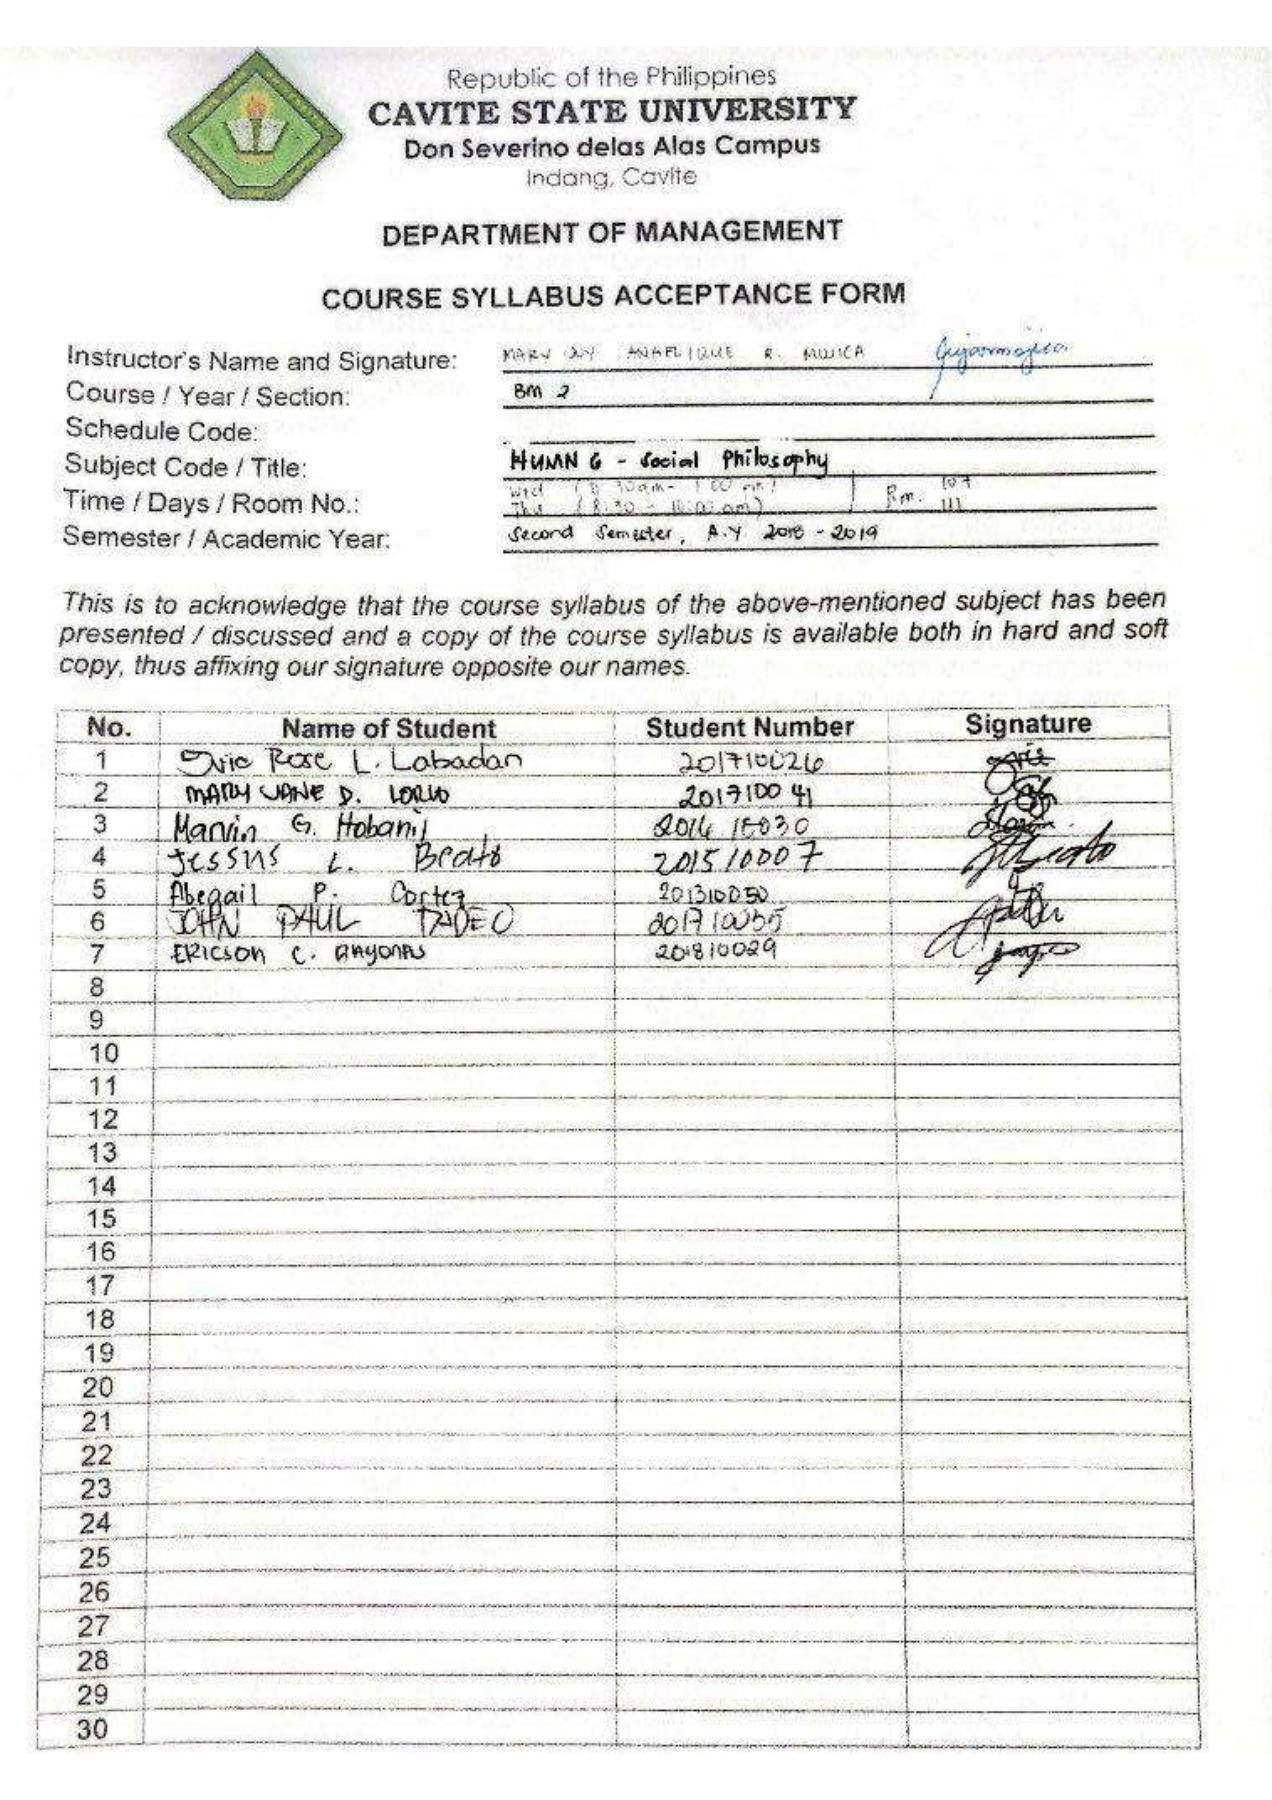 Republic of the Philippines
CAVITE STATE UNIVERSITY
Don Severino delas Alas Campus
Indang, Cavite
DEPARTMENT OF MANAGEMENT
COURSE SYLLABUS ACCEPTANCE FORM
Instructor's Name and Signature: MARY R. MOJICA
Course / Year / Section: BM 2
Schedule Code:
Subject Code / Title: HUMN 6 - Social Philosophy
Time / Days / Room No.: Wed Rm. 107
Thu (8:30 - 10:00 am) 111
Semester / Academic Year: Second Semester, A.Y 2018 - 2019
This is to acknowledge that the course syllabus of the above-mentioned subject has been
presented / discussed and a copy of the course syllabus is available both in hard and soft
copy, thus affixing our signature opposite our names.
No. Name of Student Student Number Signature
1 Rose L. Labadan 201710026
2 MARY JANE D. 201710041
3 Marvin G. Hobanil
4 L. Beato 201510007
5 Abegail P. Cortez 201310050
6 JOHN PAUL TADEO
7 ERICSON C. 201810029
8
9
10
11
12
13
14
15
16
17
18
19
20
21
22
23
24
25
26
27
28
29
30